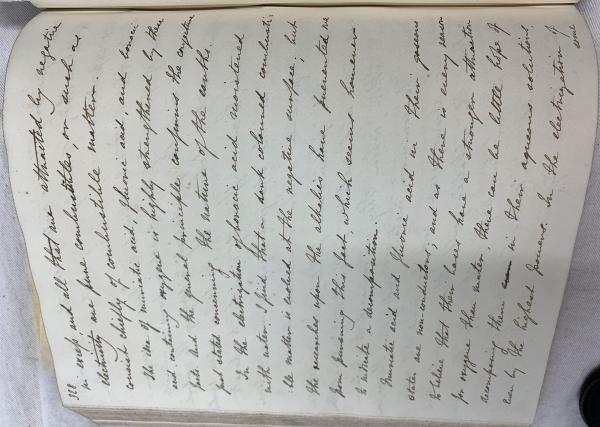 388
in excess, and all that are attracted by negative
electricity are pure combustibles, or such as
consist chiefly of combustible matter.
The idea of muriatic acid, fluoric acid, and boracic
acid containing oxygene is highly strengthened by these
facts. And the general principle confirms the conjecture
just stated concerning the nature of the earths.
In the electrization of boracic acid moistened
with water. I find that a dark coloured combusti-
ble matter is evolved at the negative surface; but
the researches upon the alkalies have prevented me
from pursuing this fact, which seems however
to indicate a decomposition.
Muriatic acid and fluoric acid in their gaseous
states are non-conductors; and as there is every reason
to believe that their bases have a stronger attraction
for oxygene than water there can be little hope of
decomposing them in their aqueous solutions,
even by the highest powers. In the electrization of
some